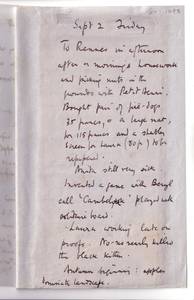 Sept 2 Friday
To Rennes in afternoon
after a morning's housework
and picking nuts in the
grounds with Petit Henri.
Bought pair of fire-dogs
35 francs, &
for 115 francs and a shabby
screen for Laura (80 fr) to be
repaired.
Anita still very sick
Invented a game with Beryl
call 'Cambeluk' played with
solitaire board.
Laura working late on
proofs. No-no nearly killed
the black kitten.
Autumn beginning: apples
dominate landscape.